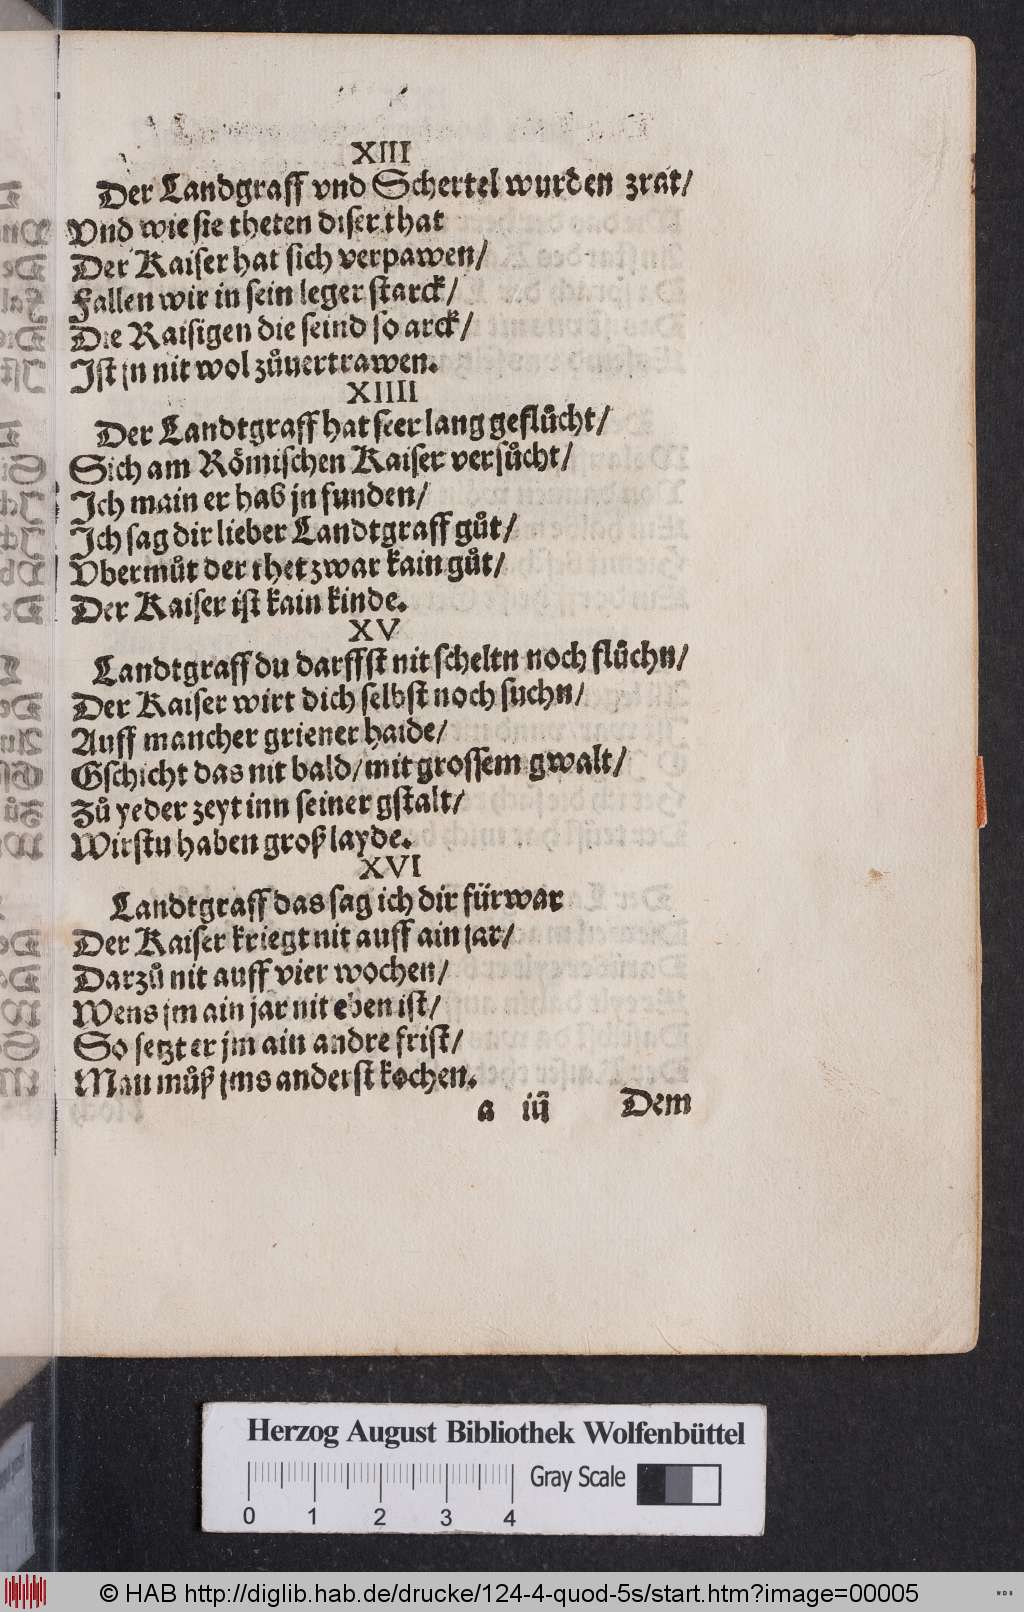 XIII
Der Landgraff vnd Schertel wurden zrat/
Vnd wie sie theten diser that
Der Kaiser hat sich verpawen/
Fallen wir in sein leger starck/
Die Raisigen die seind so arck/
Ist jn nit wol zůuertrawen.
XIIII
Der Landtgraff hat seer lang geflůcht/
Sich am Römischen Kaiser versůcht/
Ich main er hab jn funden/
Ich sag dir lieber Landtgraff gůt/
Vbermůt der thet zwar kain gůt/
Der Kaiser ist kain kinde.
XV
Landtgraff du darffst nit scheltn noch flůchn/
Der Kaiser wirt dich selbst noch suchn/
Auff mancher griener haide/
Gschicht das nit bald/mit grossem gwalt/
Zů yeder zeyt inn seiner gstalt/
Wirstu haben groß layde.
XVI
Landtgraff das sag ich dir fürwar
Der Kaiser kriegt nit auff ain jar/
Darzů nit auff vier wochen/
Wens jm ain jar nit eben ist/
So setzt er jm ain andre frist/
Man můß jms anderst kochen.
a iij Dem
Herzog August Bibliothek Wolfenbüttel
0 1 2 3 4 Gray Scale
© HAB http://diglib.hab.de/drucke/124-4-quod-5s/start.htm?image=00005